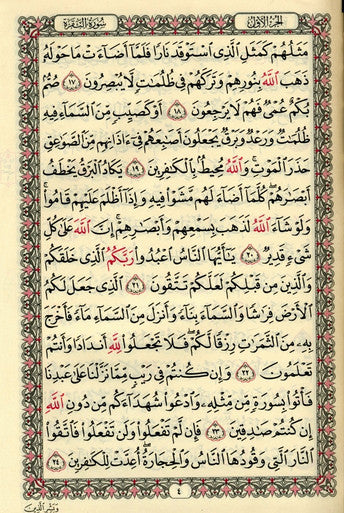 الجزء الأول
سورة البقرة
مَثَلُهُمْ كَمَثَلِ الَّذِي اسْتَوْقَدَ نَارًا فَلَمَّا أَضَاءَتْ مَا حَوْلَهُ
ذَهَبَ اللَّهُ بِنُورِهِمْ وَتَرَكَهُمْ فِي ظُلُمَاتٍ لَّا يُبْصِرُونَ ١٧ صُمٌّ
بُكْمٌ عُمْيٌ فَهُمْ لَا يَرْجِعُونَ ١٨ أَوْ كَصَيِّبٍ مِّنَ السَّمَاءِ فِيهِ
ظُلُمَاتٌ وَرَعْدٌ وَبَرْقٌ يَجْعَلُونَ أَصَابِعَهُمْ فِي ءَاذَانِهِم مِّنَ الصَّوَاعِقِ
حَذَرَ الْمَوْتِ وَاللَّهُ مُحِيطٌ بِالْكَافِرِينَ ١٩ يَكَادُ الْبَرْقُ يَخْطَفُ
أَبْصَارَهُمْ كُلَّمَا أَضَاءَ لَهُم مَّشَوْا فِيهِ وَإِذَا أَظْلَمَ عَلَيْهِمْ قَامُوا
وَلَوْ شَاءَ اللَّهُ لَذَهَبَ بِسَمْعِهِمْ وَأَبْصَارِهِمْ إِنَّ اللَّهَ عَلَى كُلِّ
شَيْءٍ قَدِيرٌ ٢٠ يَا أَيُّهَا النَّاسُ اعْبُدُوا رَبَّكُمُ الَّذِي خَلَقَكُمْ
وَالَّذِينَ مِن قَبْلِكُمْ لَعَلَّكُمْ تَتَّقُونَ ٢١ الَّذِي جَعَلَ لَكُمُ
الْأَرْضَ فِرَاشًا وَالسَّمَاءَ بِنَاءً وَأَنزَلَ مِنَ السَّمَاءِ مَاءً فَأَخْرَجَ
بِهِ مِنَ الثَّمَرَاتِ رِزْقًا لَّكُمْ فَلَا تَجْعَلُوا لِلَّهِ أَندَادًا وَأَنتُمْ
تَعْلَمُونَ ٢٢ وَإِن كُنتُمْ فِي رَيْبٍ مِّمَّا نَزَّلْنَا عَلَى عَبْدِنَا
فَأْتُوا بِسُورَةٍ مِّن مِّثْلِهِ وَادْعُوا شُهَدَاءَكُم مِّن دُونِ اللَّهِ
إِن كُنتُمْ صَادِقِينَ ٢٣ فَإِن لَّمْ تَفْعَلُوا وَلَن تَفْعَلُوا فَاتَّقُوا
النَّارَ الَّتِي وَقُودُهَا النَّاسُ وَالْحِجَارَةُ أُعِدَّتْ لِلْكَافِرِينَ ٢٤
٤
وبشر الذين